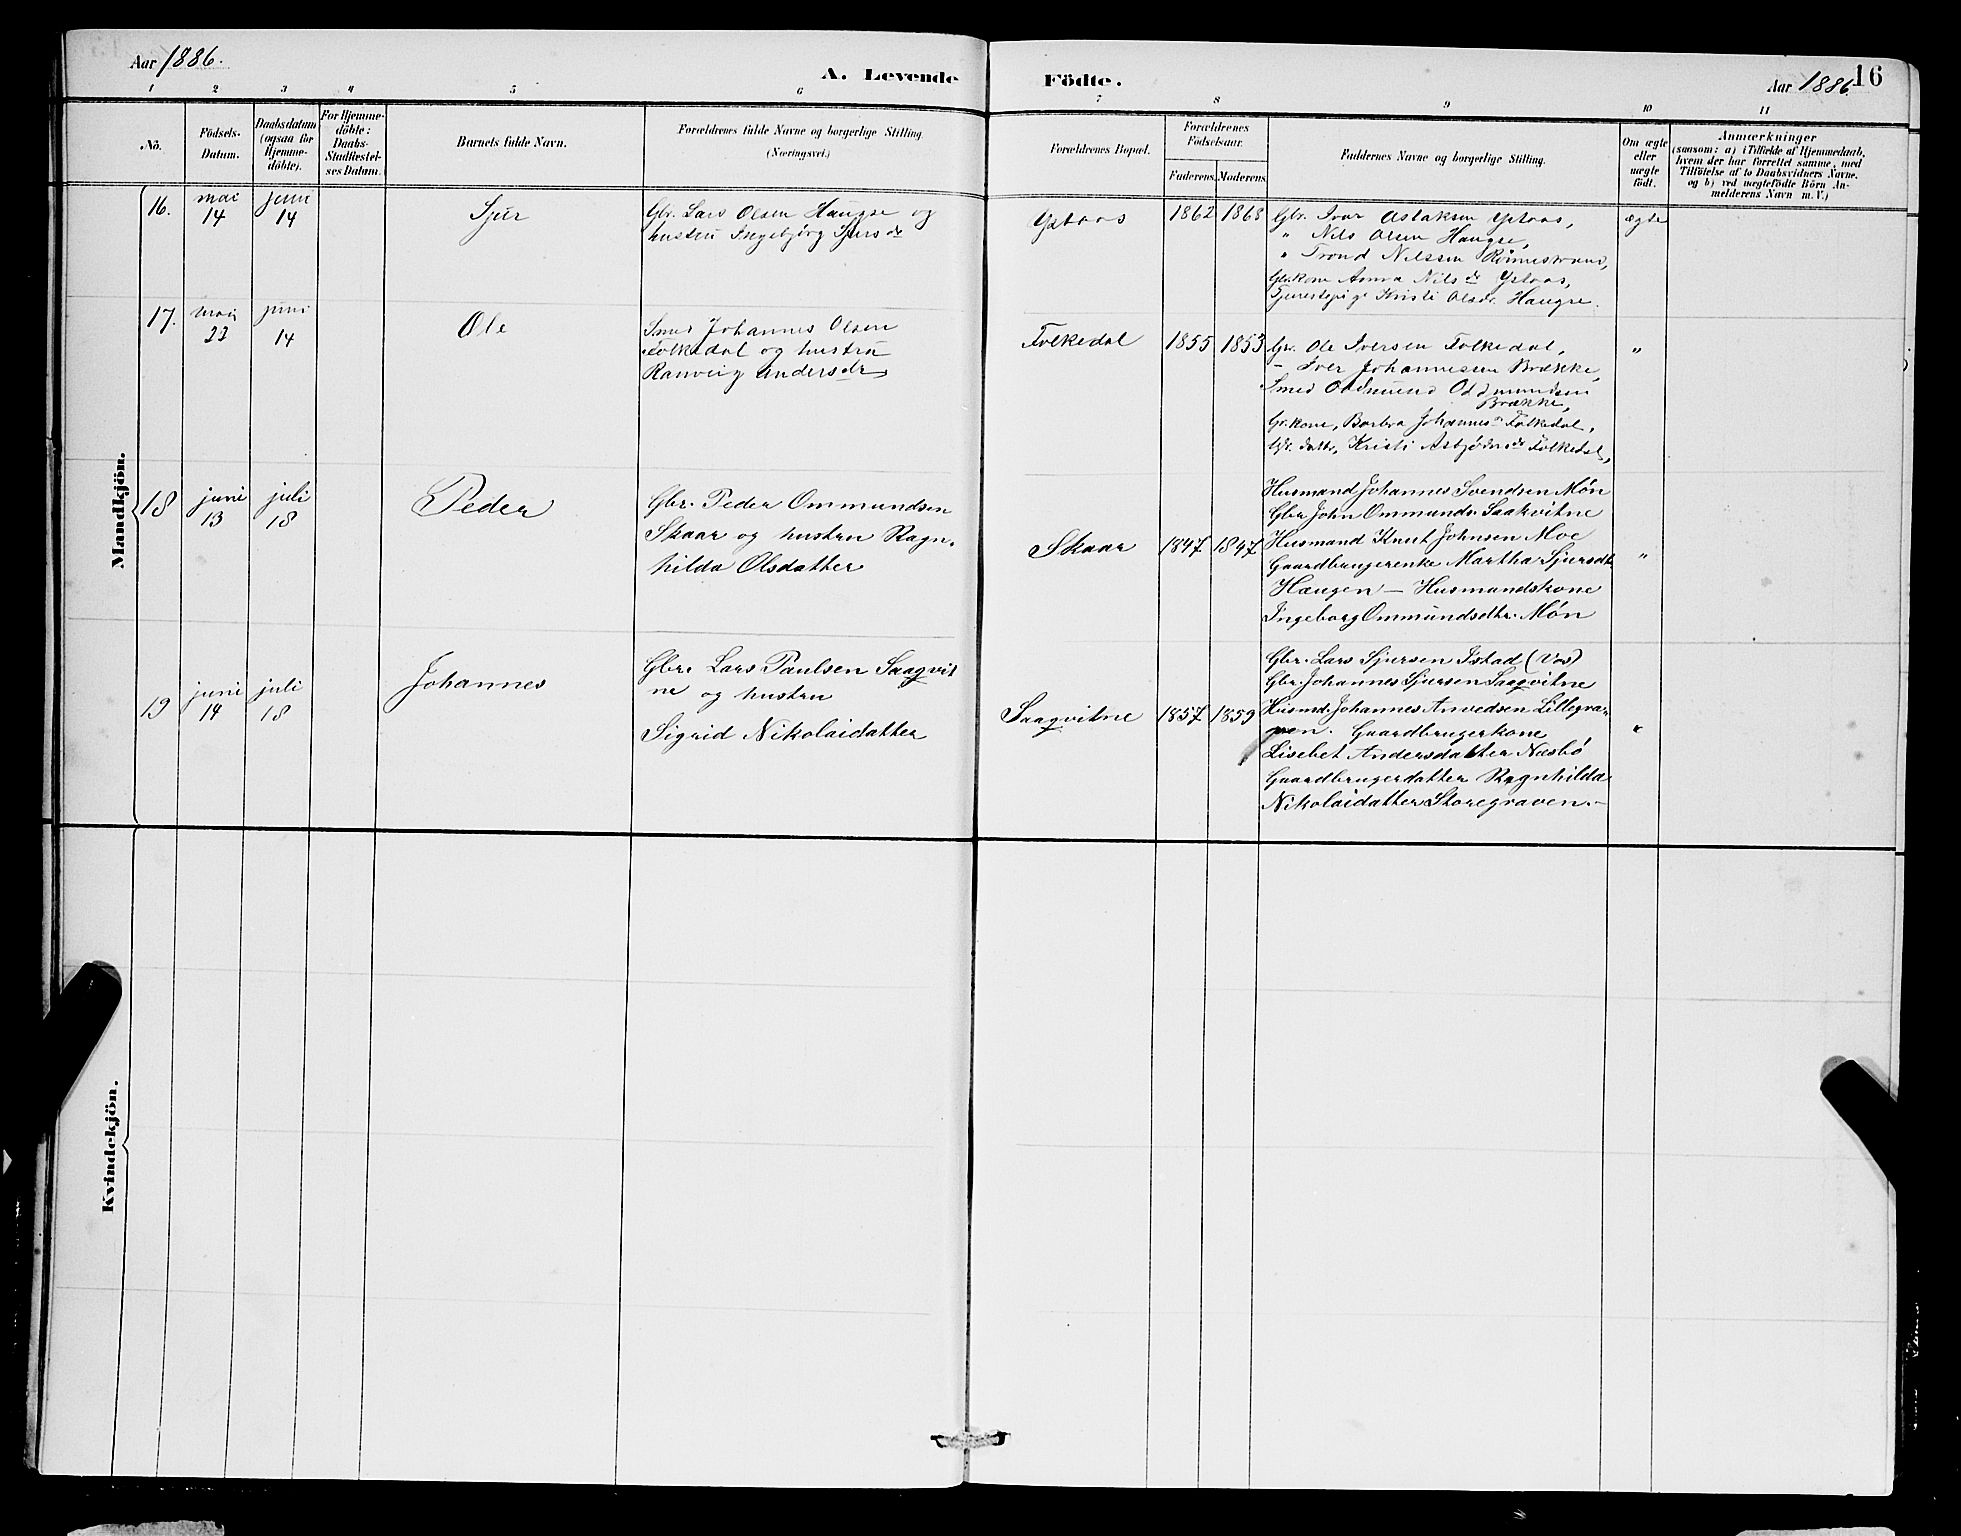 Aar 1886.
A. Levende Födte.
Aar 1886.
16
1 2 3 4 5 6 7 8 9 10 11
No.
Födsels-
Datum.
Daabsdatum
(ogsaa for
Hjemme-
döbte).
For Hjemme-
döbte:
Daabs-
Stadfæstel-
ses Datum.
Barnets fulde Navn.
Forældrenes fulde Navne og borgerlige Stilling.
(Næringsvei.)
Forældrenes Bopæl.
Forældrenes
Födselsaar.
Faderens. Moderens.
Faddernes Navne og borgerlige Stilling.
Om ægte
eller
uægte
födt.
Anmærkninger
(saasom: a) i Tilfælde af Hjemmedaab,
hvem der har forrettet samme, med
Tilföielse af to Daabsvidners Navne.
og b) ved uægtefödte Börn An-
melderens Navn m. V.)
Mandkjön.
16.
mai
14
juni
14
Sjur
Gbr. Lars Olsen Haugse og
hustru Ingebjørg Sjursdr
Ystaas
1862 1868
Gbr. Ivar Aslaksen Ystaas,
" Nils Olsen Haugse,
" Trond Nilssen Rönnestrand,
Gbrkone Anna Nilsdr Ystaas,
Tjenestepige Kristi Olsdr. Haugse.
ægte
17.
mai
22
juni
14
Ole
Smed Johannes Olsen
Folkedal og hustru
Ranveig Andersdr
Folkedal
1855 1853
Gbr. Ole Iversen Folkedal,
- Iver Johannessen Brække,
Smed Oddmund Oddmundsen
Brække,
Gr.kone, Barbra Johannesdr Folkedal,
Gbr. datter, Kristi Asbjørnsdr Folkedal,
"
18
juni
13
juli
18
Peder
Gbr. Peder Ommundsen
Skaar og hustru Ragn-
hilda Olsdatter
Skaar
1847 1847
Husmand Johannes Svendsen Møn
Gbr John Ommunds. Saakvitne
Husmand Knut Johnsen Moe
Gaardbrugerenke Martha Sjursdtr.
Haugen — Husmandskone
Ingeborg Ommundsdtr. Møn
"
19
juni
14
juli
18
Johannes
Gbr. Lars Paulsen Saaqvit
ne og hustru
Sigrid Nikolaidatter
Saaqvitne
1857 1859
Gbr. Lars Sjursen Istad (Vos)
Gbr. Johannes Sjursen Saaqvitne
Husmd. Johannes Anvedsen Lillegra-
ven. Gaardbrugerkone
Lisebet Andersdatter Næsbö
Gaardbrugerdatter Ragnhilda
Nikolaidatter Storegraven.-
"
Kvindekjön.